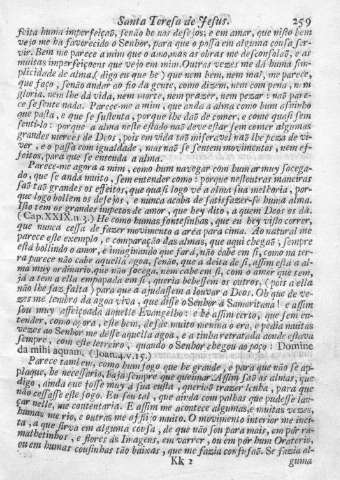 Santa Teresa de Jesus. 259
feita huma imperfeiçaõ, senaõ he nos desejos; e em amar, que nisto bem
vejo me ha favorecido o Senhor, para que o possa em alguma cousa ser-
vir. Bem me parece a mim que o amo, mas as obras me desconsolaõ, e as
muitas imperfeiçoens que vejo em mim. Outras vezes me dá huma sim-
plicidade de alma (digo eu que he) que nem bem, nem mal, me parece,
que faço, senaõ andar ao fio da gente, como dizem, nem com pena, nem
gloria, nem lhe dá vida, nem morte, nem prazer, nem pezar: naõ pare-
ce se sente nada. Parece-me a mim, que anda a alma como hum asninho
que pasta, e que se sustenta, porque lhe daõ de comer, e come quasi sem
senti-lo: porque a alma neste estado naõ deve estar sem comer algumas
grandes mercès de Deos, pois em vida taõ miseravel naõ lhe peza de vi-
ver, e o passa com igualdade, mas naõ se sentem movimentos, nem ef-
feitos, para que se entenda a alma.
Parece-me agora a mim, como hum navegar com hum ar muy socega-
do, que se anda muito, sem entender como: porque nestoutras maneiras
saõ taõ grandes os effeitos, que quasi logo vé a alma sua melhoria, por-
que logo bollem os desejos, e nunca acaba de satisfazer-se huma alma.
Isto tem os grandes impetos de amor, que hey dito, a quem Deos os dá.
(Cap.XXIX.n.3.) He como humas fontesinhas, que eu hey visto correr,
que nunca cessa de fazer movimento a arêa para cima. Ao natural me
parece este exemplo, e comparaçaõ das almas, que aqui chegaõ, sempre
está bolindo o amor, e imaginando que fará, naõ cabe em si, como na ter-
ra parece naõ cabe aquella agoa, senaõ, que a deita de si, assim está a al-
ma muy ordinario, que naõ socega, nem cabe em si, com o amor que tem,
já a tem a ella empapada em si, queria bebessem os outros, (pois a ella
naõ lhe faz falta) para que a ajudassem a louvar a Deos. Oh que de ve-
zes me lembro da agoa viva, que disse o Senhor á Samaritana! e assim
sou muy affeiçoada aquelle Evangelho: e he assim certo, que sem en-
tender, como agora, este bem, desde muito menina o era, e pedia muitas
vezes ao Senhor me désse aquella agoa, e a tinha retratada donde estava
sempre, com este letreiro, quando o Senhor chegou ao poço: Domine
da mihi aquam. (Joan.4.v.15.)
Parece tambem, como hum fogo que he grande, e para que naõ se ap-
plaque, he necessario, haja sempre que queimar. Assim saõ as almas, que
digo, ainda que fosse muy à sua custa, queriaõ trazer lenha, para que
naõ cessasse este fogo. Eu sou tal, que ainda com palhas que pudesse lan-
çar nelle, me contentaria. E assim me acontece algumas, e muitas vezes,
humas me rio, e outras me affligo muito. O movimento interior me inci-
ta, a que sirva em alguma cousa, de que naõ sou para mais, em pôr ra-
malhetinhos, e flores ás Imagens, em varrer, ou em pôr hum Oratorio,
ou em humas cousinhas taõ baixas, que me fazia confusaõ. Se fazia al-
Kk 2 guma